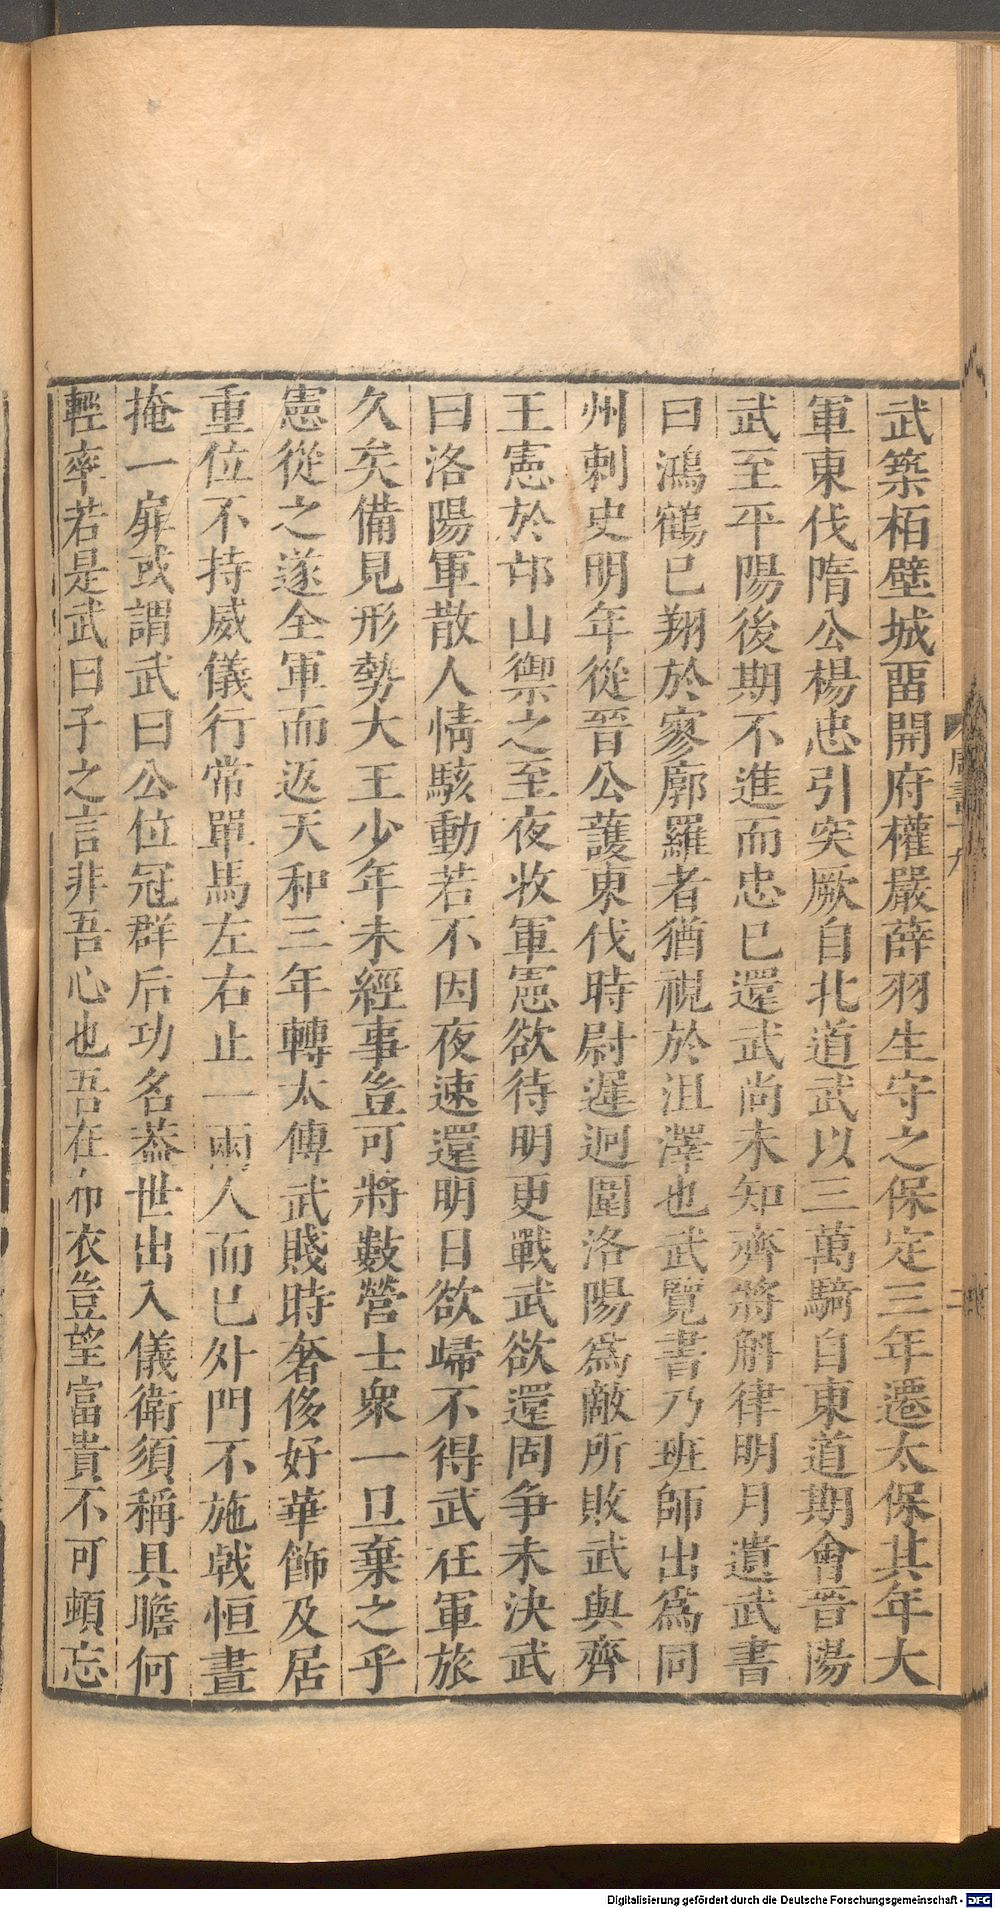 武築栢壁城畱開府權嚴薛羽生守之保定三年遷太保其年大
軍東伐隋公楊忠引突厥自北道武以三萬騎自東道期會晉陽
武至平陽後期不進而忠已還武尚未知齊將斛律明月遺武書
曰鴻鶴已翔於寥廓羅者猶視於沮澤也武覽書乃班師出爲同
州刺史明年從晉公護東伐時尉遲迥圍洛陽爲敵所敗武與齊
王憲於邙山禦之至夜收軍憲欲待明更戰武欲還固争未決武
曰洛陽軍散人情駭動若不因夜速還明日欲歸不得武在軍旅
久矣備見形勢大王少年未經事豈可將數營士衆一旦棄之乎
憲從之遂全軍而返天和三年轉太傅武賤時奢侈好華飾及居
重位不持威儀行常單馬左右止一兩人而已外門不施戟恒晝
掩一扉或謂武曰公位冠群后功名葢世出入儀衛須稱具瞻何
輕率若是武曰子之言非吾心也吾在布衣豈望富貴不可頓忘
周書十九
Digitalisierung gefördert durch die Deutsche Forschungsgemeinschaft - DFG